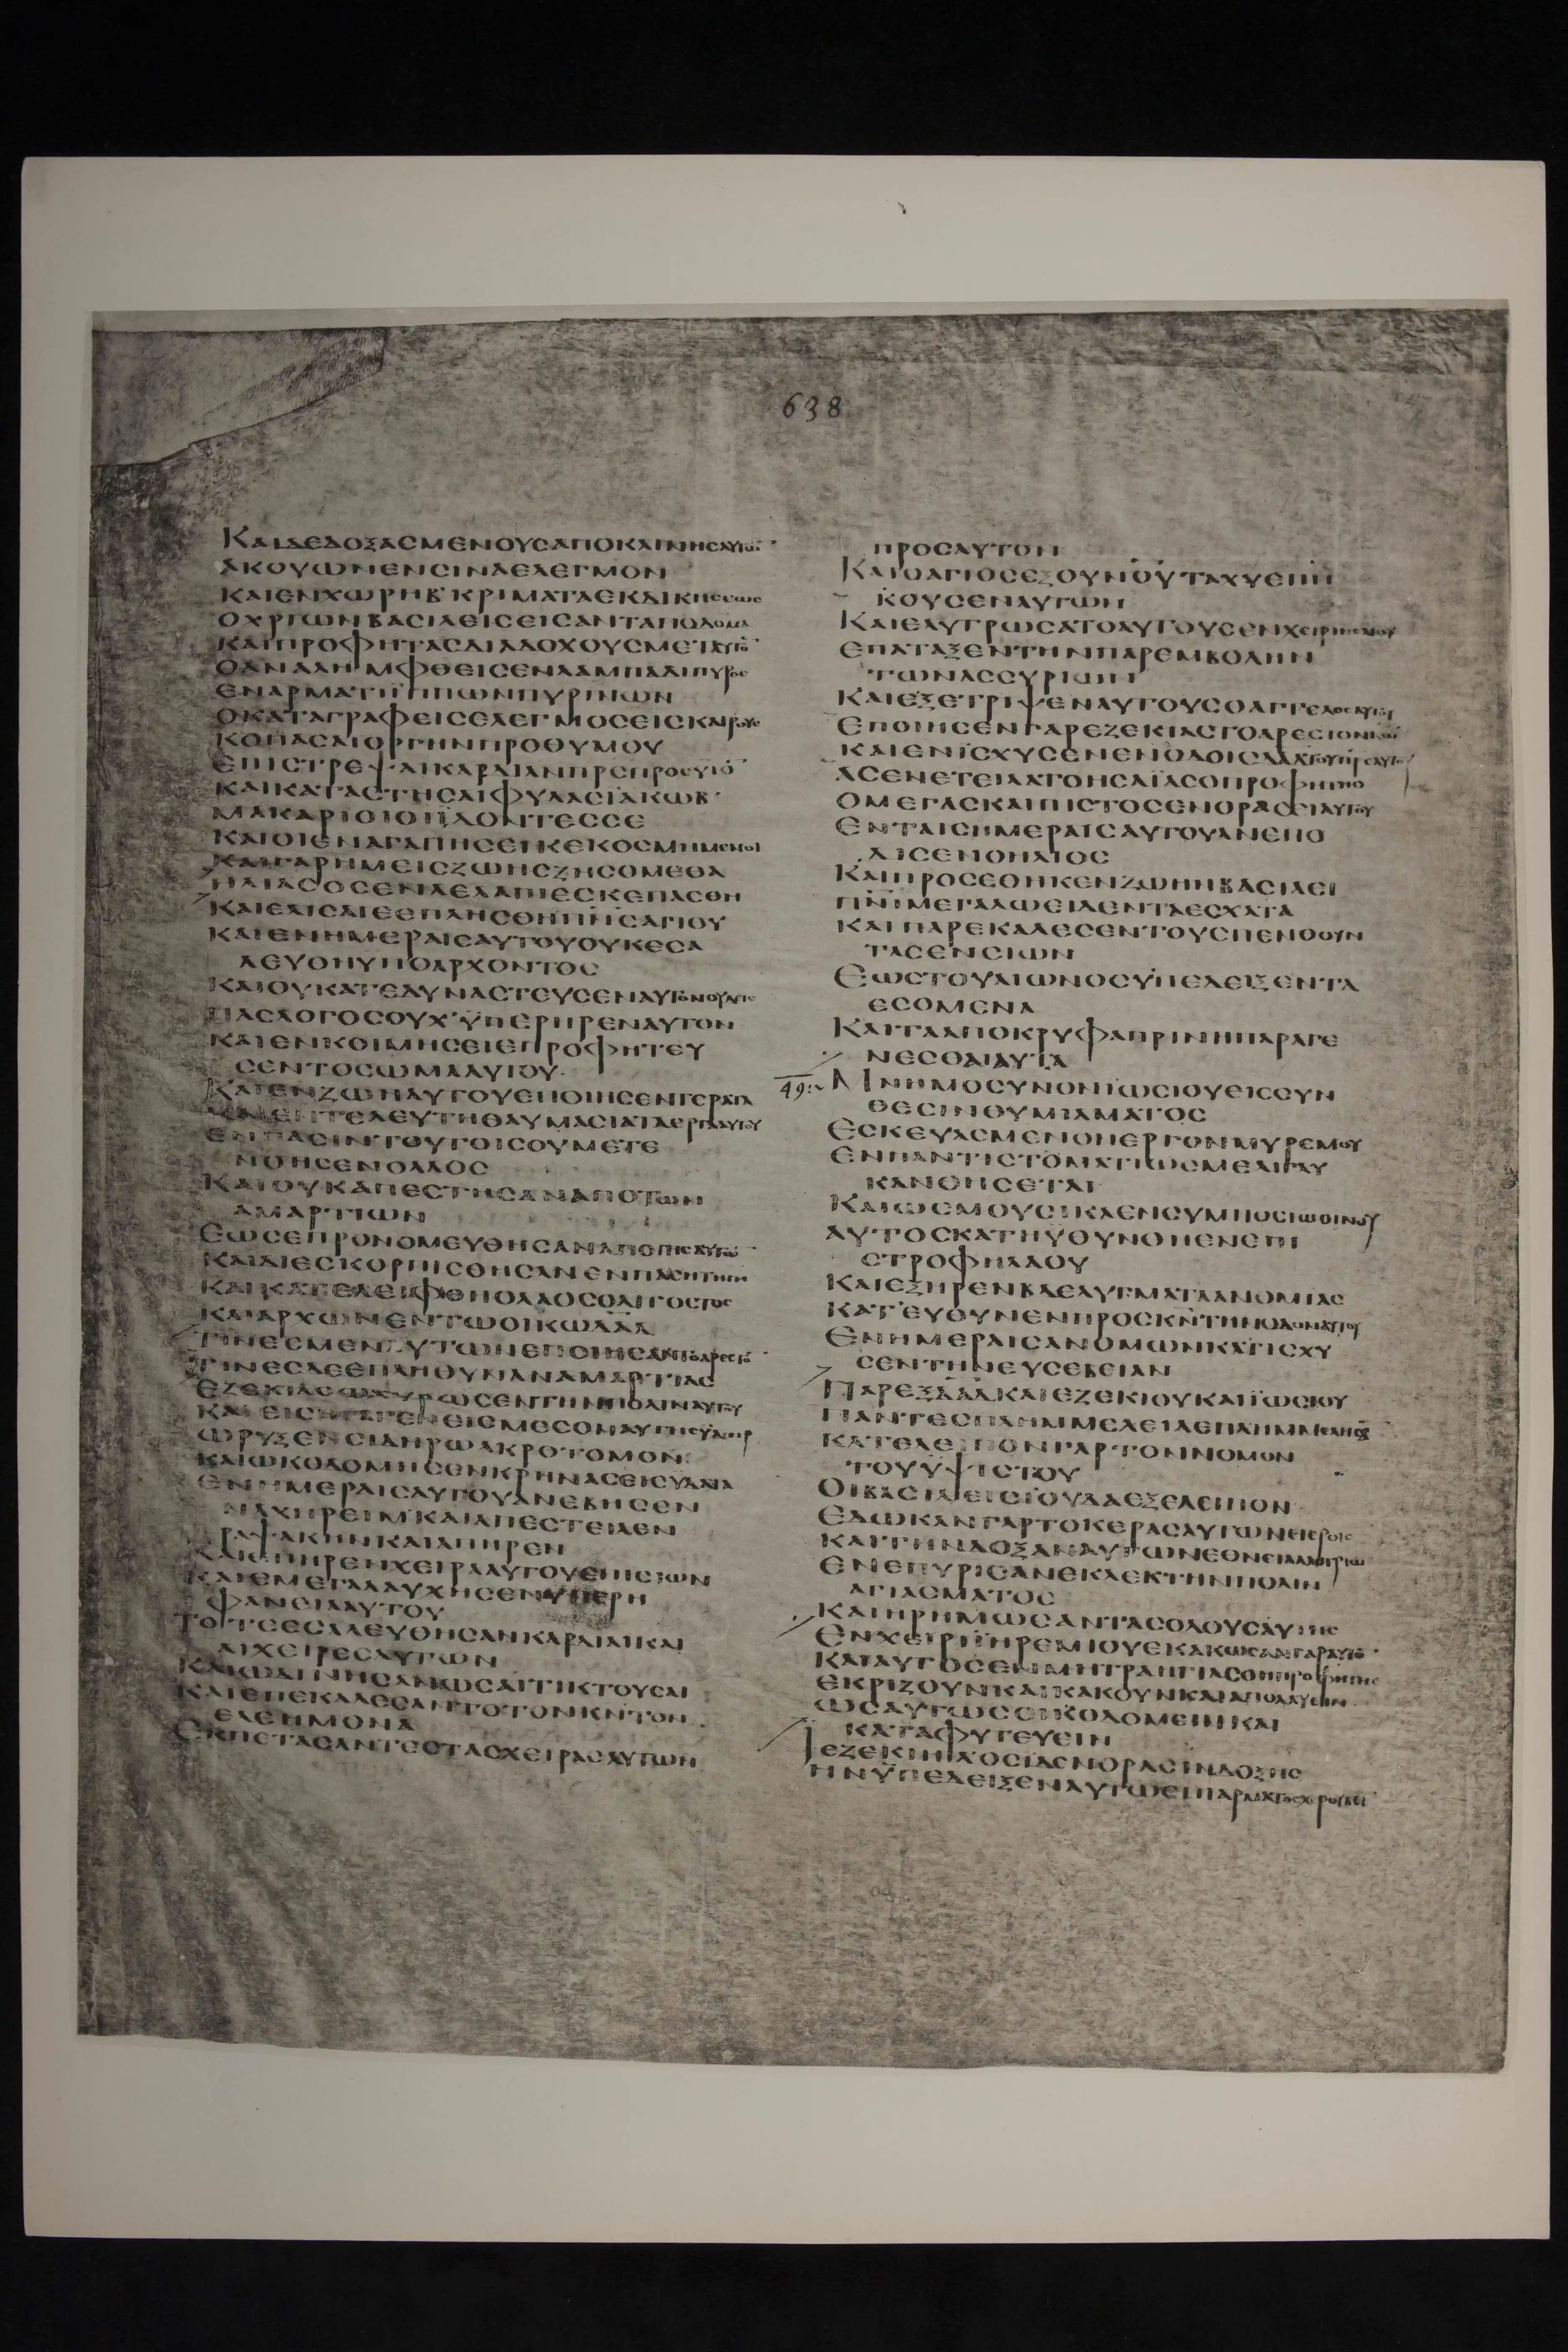 638
ΚΑΙΔΕΔΟΞΑΣΜΕΝΟΥΣΑΠΟΚΛΙΝΗΣΑΥΤΩ̅
ΑΚΟΥΩΝΕΝΣΙΝΑΕΛΕΓΜΟΝ
ΚΑΙΕΝΧΩΡΗΒ'ΚΡΙΜΑΤΑΕΚΔΙΚΗΣΕΩΣ
ΟΧΡΙΩΝΒΑΣΙΛΕΙΣΕΙΣΑΝΤΑΠΟΔΟΜΑ
ΚΑΙΠΡΟΦΗΤΑΣΔΙΑΔΟΧΟΥΣΜΕΤΑΥΤΟ̅
ΟΑΝΑΛΗΜΦΘΕΙΣΕΝΛΑΜΠΑΔΙΠΥΡΟΣ
ΕΝΑΡΜΑΤΙΪΠΠΩΝΠΥΡΙΝΩΝ
ΟΚΑΤΑΓΡΑΦΕΙΣΕΛΕΓΜΟΣΕΙΣΚΑΙΡΟΥΣ
ΚΟΠΑΣΑΙΟΡΓΗΝΠΡΟΘΥΜΟΥ
ΕΠΙΣΤΡΕΨΑΙΚΑΡΔΙΑΝΠΡ̅Σ̅ΠΡΟΣΥΙΟ̅
ΚΑΙΚΑΤΑΣΤΗΣΑΙΦΥΛΑΣΪΑΚΩΒ'
ΜΑΚΑΡΙΟΙΟΙΪΔΟΝΤΕΣΣΕ
ΚΑΙΟΙΕΝΑΓΑΠΗΣΕΙΚΕΚΟΣΜΗΜΕΝΟΙ
ΚΑΙΓΑΡΗΜΕΙΣΖΩΗΣΖΗΣΟΜΕΘΑ
ΗΛΙΑΣΟΣΕΝΛΕΛΑΠΙΕΣΚΕΠΑΣΘΗ
ΚΑΙΕΛΙΣΑΙΕΕΠΛΗΣΘΗΠΝ̅Σ̅ΑΓΙΟΥ
ΚΑΙΕΝΗΜΕΡΑΙΣΑΥΤΟΥΟΥΚΕΣΑ
ΛΕΥΘΗΥΠΟΑΡΧΟΝΤΟΣ
ΚΑΙΟΥΚΑΤΕΔΥΝΑΣΤΕΥΣΕΝΑΥΤΟΝΟΥΔΙΣ
ΠΑΣΛΟΓΟΣΟΥΧ'ΫΠΕΡΗΡΕΝΑΥΤΟΝ
ΚΑΙΕΝΚΟΙΜΗΣΕΙΕΠΡΟΦΗΤΕΥ
ΣΕΝΤΟΣΩΜΑΑΥΤΟΥ·
ΚΑΙΕΝΖΩΗΑΥΤΟΥΕΠΟΙΗΣΕΝΤΕΡΑΤΑ
ΚΑΙΕΝΤΕΛΕΥΤΗΘΑΥΜΑΣΙΑΤΑΕΡΓΑΑΥΤΟΥ
ΕΝΠΑΣΙΝΤΟΥΤΟΙΣΟΥΜΕΤΕ
ΝΟΗΣΕΝΟΛΑΟΣ
ΚΑΙΟΥΚΑΠΕΣΤΗΣΑΝΑΠΟΤΩΝ
ΑΜΑΡΤΙΩΝ
ΕΩΣΕΠΡΟΝΟΜΕΥΘΗΣΑΝΑΠΟΓΗΣΑΥΤΩ̅
ΚΑΙΔΙΕΣΚΟΡΠΙΣΘΗΣΑΝΕΝΠΑΣΗΤΗΓΗ
ΚΑΙΚΑΤΕΛΕΙΦΘΗΟΛΑΟΣΟΛΙΓΟΣΤΟΣ
ΚΑΙΑΡΧΩΝΕΝΤΩΟΙΚΩΔΑΔ
ΤΙΝΕΣΜΕΝΑΥΤΩΝΕΠΟΙΗΣΑΝΤΟΑΡΕΣΤΟ̅
ΤΙΝΕΣΔΕΕΠΛΗΘΥΝΑΝΑΜΑΡΤΙΑΣ
ΕΖΕΚΙΑΣΩΧΥΡΩΣΕΝΤΗΝΠΟΛΙΝΑΥΤΟΥ
ΚΑΙΕΙΣΗΓΑΓΕΝΕΙΣΜΕΣΟΝΑΥΤΗΣΥΔΩΡ
ΩΡΥΞΕΝΣΙΔΗΡΩΑΚΡΟΤΟΜΟΝ·
ΚΑΙΩΚΟΔΟΜΗΣΕΝΚΡΗΝΑΣΕΙΣΥΔΑΤΑ
ΕΝΗΜΕΡΑΙΣΑΥΤΟΥΑΝΕΒΗΣΕΝ
ΝΑΧΗΡΕΙΜ'ΚΑΙΑΠΕΣΤΕΙΛΕΝ
ΡΑΨΑΚΗΝΚΑΙΑΠΗΡΕΝ
ΚΑΙΕΠΗΡΕΝΧΕΙΡΑΑΥΤΟΥΕΠΙΣΙΩΝ
ΚΑΙΕΜΕΓΑΛΑΥΧΗΣΕΝΥΠΕΡΗ
ΦΑΝΕΙΑΑΥΤΟΥ
ΤΟΤΕΕΣΑΛΕΥΘΗΣΑΝΚΑΡΔΙΑΙΚΑΙ
ΑΙΧΕΙΡΕΣΑΥΤΩΝ
ΚΑΙΩΔΙΝΗΣΑΝΩΣΑΙΤΙΚΤΟΥΣΑΙ
ΚΑΙΕΠΕΚΑΛΕΣΑΝΤΟΤΟΝΚ̅Ν̅ΤΟΝ
ΕΛΕΗΜΟΝΑ
ΕΚΠΕΤΑΣΑΝΤΕΣΤΑΣΧΕΙΡΑΣΑΥΤΩΝ
ΠΡΟΣΑΥΤΟΝ
ΚΑΙΟΑΓΙΟΣΕΞΟΥΝΟΥΤΑΧΥΕΠΗ
ΚΟΥΣΕΝΑΥΤΩΝ
ΚΑΙΕΛΥΤΡΩΣΑΤΟΑΥΤΟΥΣΕΝΧΕΙΡΙΗΣΑΙΟΥ
ΕΠΑΤΑΞΕΝΤΗΝΠΑΡΕΜΒΟΛΗΝ
ΤΩΝΑΣΣΥΡΙΩΝ
ΚΑΙΕΞΕΤΡΙΨΕΝΑΥΤΟΥΣΟΑΓΓΕΛΟΣΑΥΤΟΥ
ΕΠΟΙΗΣΕΝΓΑΡΕΖΕΚΙΑΣΤΟΑΡΕΣΤΟΝΚ̅Ω̅
ΚΑΙΕΝΪΣΧΥΣΕΝΕΝΟΔΟΙΣΔΑΔΤΟΥΠΡ̅Σ̅ΑΥΤΟΥ
ΑΣΕΝΕΤΕΙΛΑΤΟΗΣΑΪΑΣΟΠΡΟΦΗΤΗΣ
ΟΜΕΓΑΣΚΑΙΠΙΣΤΟΣΕΝΟΡΑΣΕΙΑΥΤΟΥ
ΕΝΤΑΙΣΗΜΕΡΑΙΣΑΥΤΟΥΑΝΕΠΟ
ΔΙΣΕΝΟΗΛΙΟΣ
ΚΑΙΠΡΟΣΕΘΗΚΕΝΖΩΗΝΒΑΣΙΛΕΙ
ΠΝ̅Ι̅ΜΕΓΑΛΩΕΙΔΕΝΤΑΕΣΧΑΤΑ
ΚΑΙΠΑΡΕΚΑΛΕΣΕΝΤΟΥΣΠΕΝΘΟΥΝ
ΤΑΣΕΝΣΙΩΝ
ΕΩΣΤΟΥΑΙΩΝΟΣΫΠΕΔΕΙΞΕΝΤΑ
ΕΣΟΜΕΝΑ
ΚΑΙΤΑΑΠΟΚΡΥΦΑΠΡΙΝΗΠΑΡΑΓΕ
ΝΕΣΘΑΙΑΥΤΑ
49:~ ΜΝΗΜΟΣΥΝΟΝΪΩΣΙΟΥΕΙΣΣΥΝ
ΘΕΣΙΝΘΥΜΙΑΜΑΤΟΣ
ΕΣΚΕΥΑΣΜΕΝΟΝΕΡΓΟΝΜΥΡΕΨΟΥ
ΕΝΠΑΝΤΙΣΤΟΜΑΤΙΩΣΜΕΛΙΓΛΥ
ΚΑΝΘΗΣΕΤΑΙ
ΚΑΙΩΣΜΟΥΣΙΚΑΕΝΣΥΜΠΟΣΙΩΟΙΝΟΥ
ΑΥΤΟΣΚΑΤΗΥΘΥΝΘΗΕΝΕΠΙ
ΣΤΡΟΦΗΛΑΟΥ
ΚΑΙΕΞΗΡΕΝΒΔΕΛΥΓΜΑΤΑΑΝΟΜΙΑΣ
ΚΑΤΕΥΘΥΝΕΝΠΡΟΣΚ̅Ν̅ΤΗΝΚΑΡΔΙΑΝΑΥΤΟΥ
ΕΝΗΜΕΡΑΙΣΑΝΟΜΩΝΚΑΤΙΣΧΥ
ΣΕΝΤΗΝΕΥΣΕΒΕΙΑΝ
ΠΑΡΕΞΔΑΔΚΑΙΕΖΕΚΙΟΥΚΑΙΪΩΣΙΟΥ
ΠΑΝΤΕΣΠΛΗΜΜΕΛΕΙΑΕΠΛΗΜΜΕΛΗΣΑ̅
ΚΑΤΕΛΕΙΠΟΝΓΑΡΤΟΝΝΟΜΟΝ
ΤΟΥΫΨΙΣΤΟΥ
ΟΙΒΑΣΙΛΕΙΣΙΟΥΔΑΕΞΕΛΕΙΠΟΝ
ΕΔΩΚΑΝΓΑΡΤΟΚΕΡΑΣΑΥΤΩΝΕΤΕΡΟΙΣ
ΚΑΙΤΗΝΔΟΞΑΝΑΥΤΩΝΕΘΝΕΙΑΛΛΟΤΡΙΩ
ΕΝΕΠΥΡΙΣΑΝΕΚΛΕΚΤΗΝΠΟΛΙΝ
ΑΓΙΑΣΜΑΤΟΣ
ΚΑΙΗΡΗΜΩΣΑΝΤΑΣΟΔΟΥΣΑΥΤΗΣ
ΕΝΧΕΙΡΙΪΗΡΕΜΙΟΥΕΚΑΚΩΣΑΝΓΑΡΑΥΤΟ̅
ΚΑΙΑΥΤΟΣΕΝΜΗΤΡΑΗΓΙΑΣΘΗΠΡΟΦΗΤΗΣ
ΕΚΡΙΖΟΥΝΚΑΙΚΑΚΟΥΝΚΑΙΑΠΟΛΛΥΕΙΝ
ΩΣΑΥΤΩΣΟΙΚΟΔΟΜΕΙΝΚΑΙ
ΚΑΤΑΦΥΤΕΥΕΙΝ
ΙΕΖΕΚΙΗΛ'ΟΣΙΔΕΝΟΡΑΣΙΝΔΟΞΗΣ
ΗΝΫΠΕΔΕΙΞΕΝΑΥΤΩΕΠΙΑΡΜΑΤΟΣΧΕΡΟΥΒΕΙ